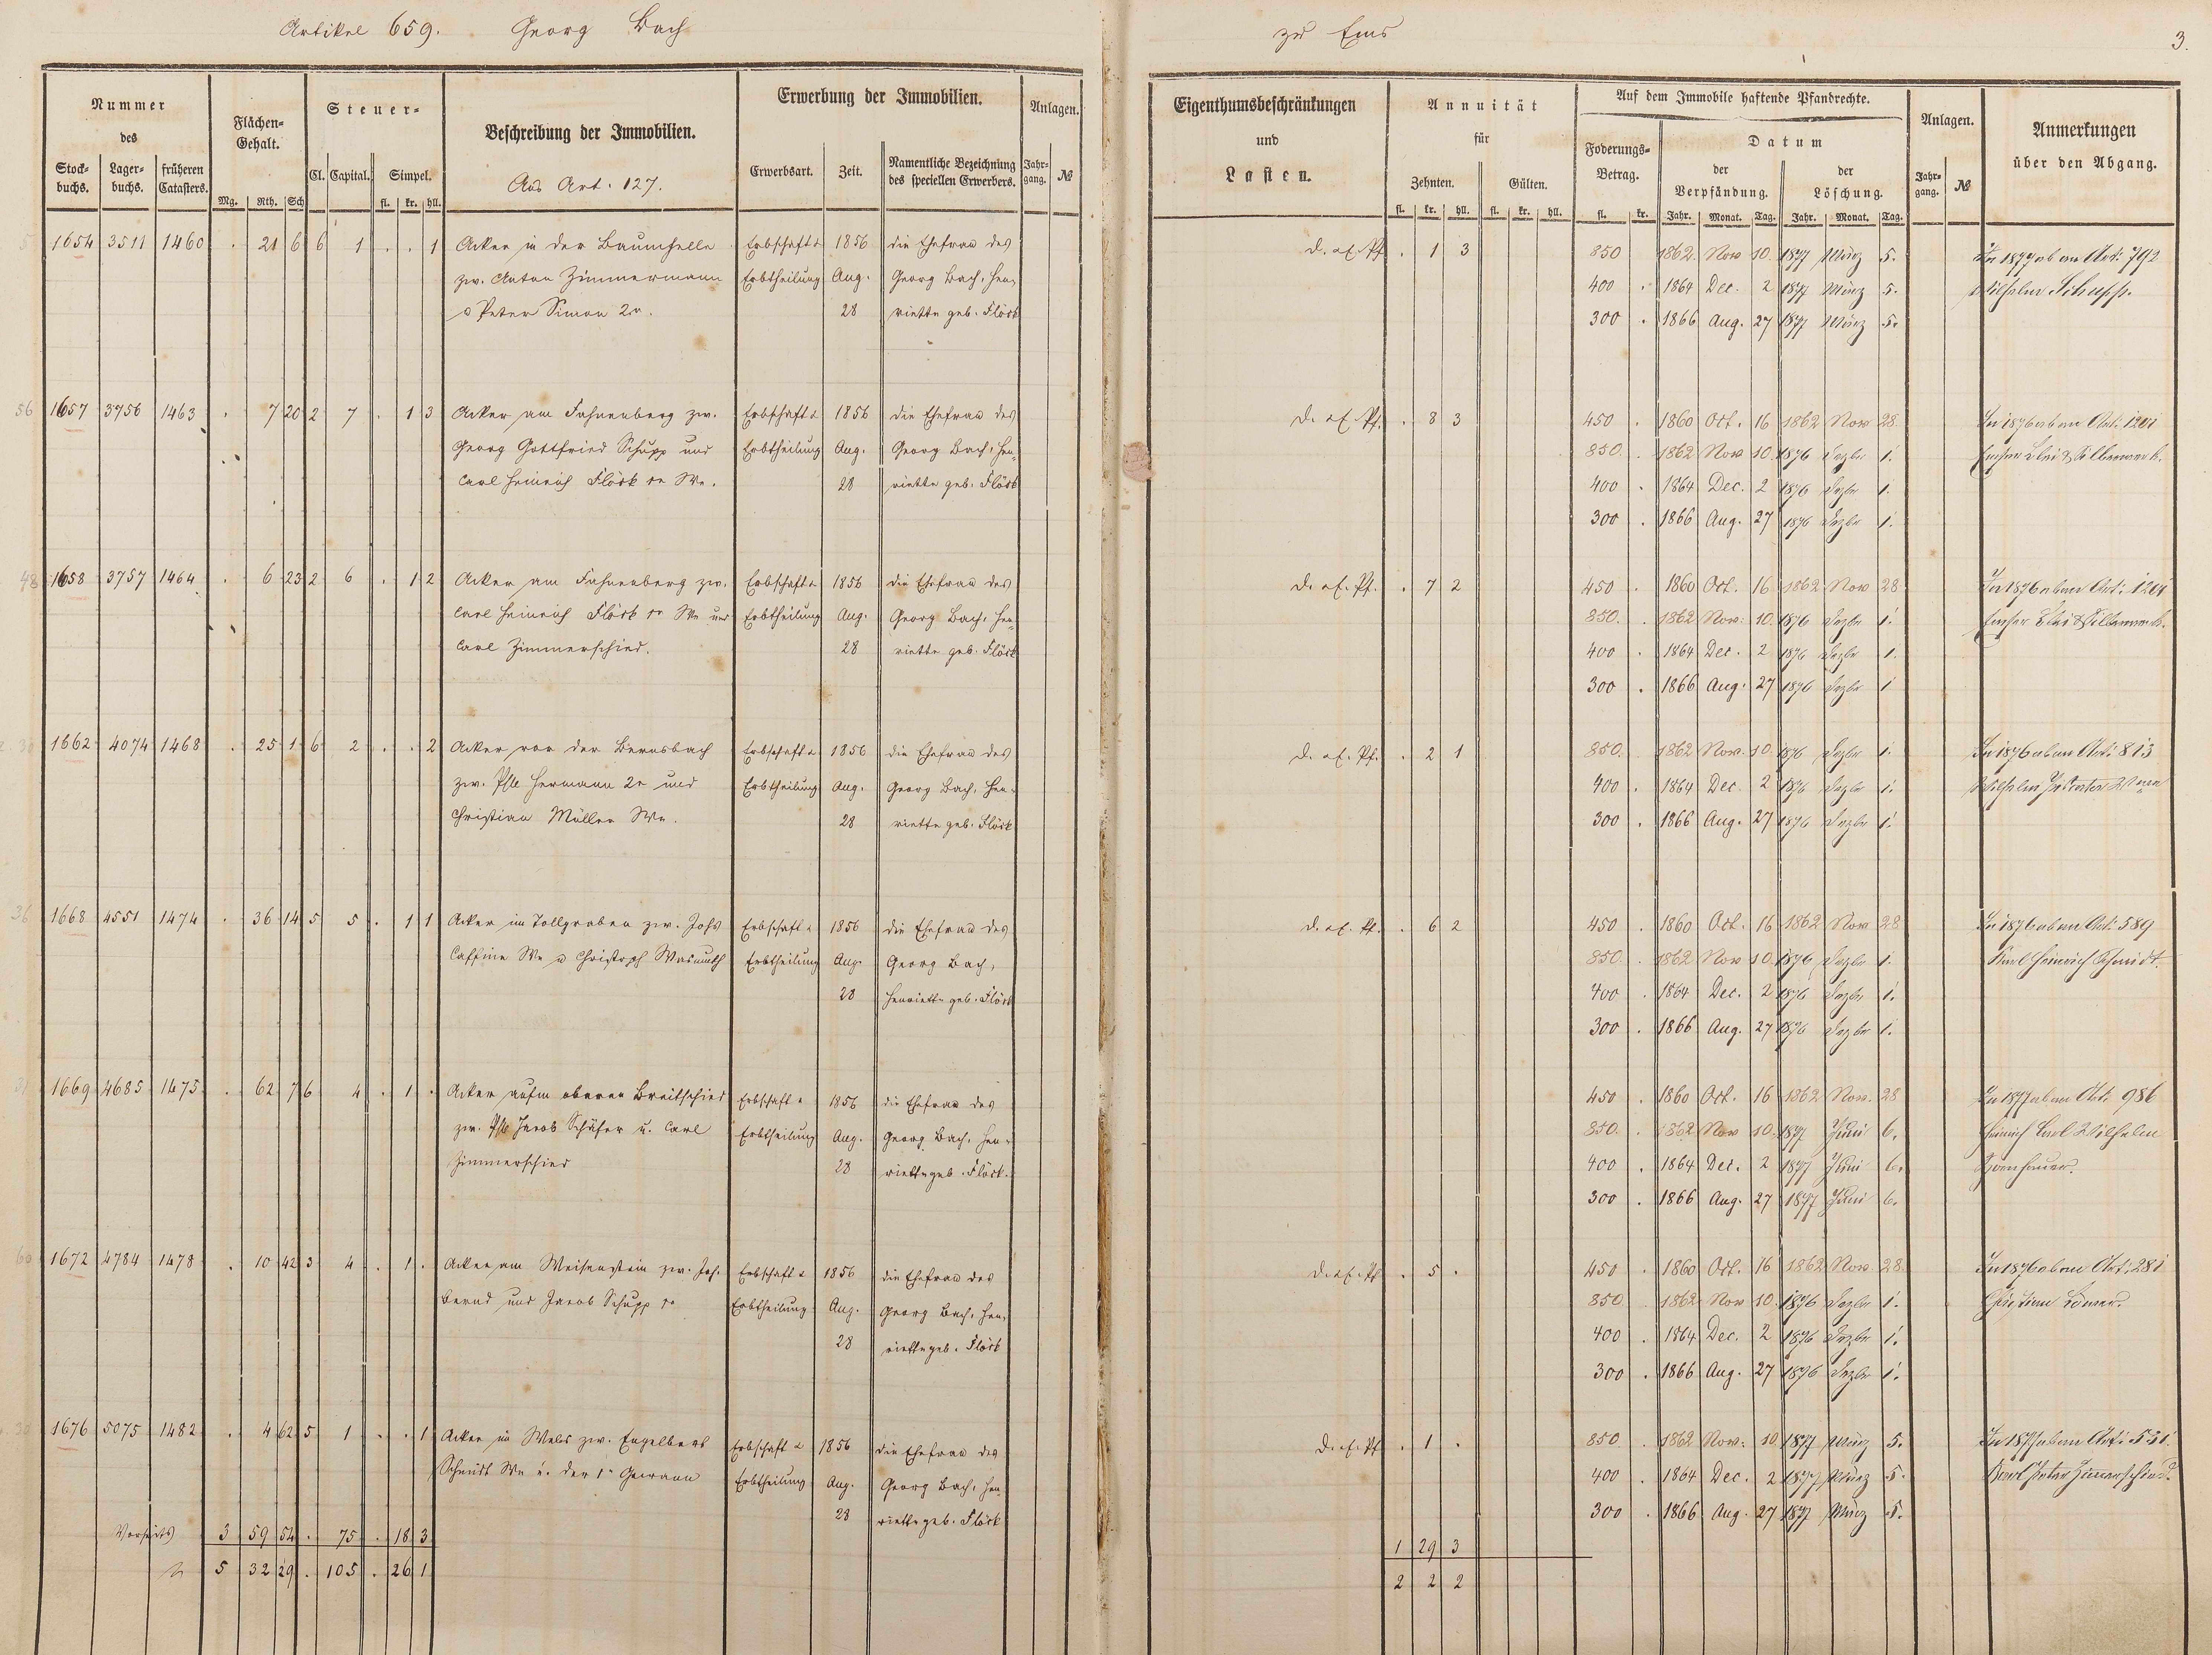 Artikel 659. Georg Bach zu Ems 3.
Nummer des
Stockbuchs. Lagerbuchs. früheren Catasters.
Flächen-Gehalt.
Mg. Rth. Sch
Steuer-
Cl. Capital. Simpel.
fl. kr. hll.
Beschreibung der Immobilien.
Aus Art. 127.
Erwerbung der Immobilien.
Erwerbsart. Zeit. Namentliche Bezeichnung des speciellen Erwerbers.
Anlagen.
Jahrgang. №
Eigenthumsbeschränkungen und Lasten.
Annuität für
Zehnten. Gülten.
fl. kr. hll. fl. kr. hll.
Auf dem Immobile haftende Pfandrechte.
Foderungs-Betrag.
fl. kr.
Datum
der Verpfändung. der Löschung.
Jahr. Monat. Tag. Jahr. Monat. Tag.
Anlagen.
Jahrgang. №
Anmerkungen über den Abgang.
1654 3511 1460 . 21 6 6 1 . . 1 Acker in der Baumhelle Erbschaft u 1856 die Ehefrau des
zw. Anton Zimmermann Erbtheilung Aug. Georg Bach, Hen-
u Peter Simon 2r. 28 riette geb. Flöck
d. ex. Pf. . 1 3 850 1862 Nov 10. 1877 März 5. In 1877 ab an Art: 792
400 . 1864 Dec. 2 1877 März 5. Wilhelm Schupp.
300 . 1866 Aug. 27 1877 März 5.
1657 3756 1463 . 7 20 2 7 . 1 3 Acker am Fahnenberg zw. Erbschaft u 1856 die Ehefrau des
Georg Gottfried Schupp und Erbtheilung Aug. Georg Bach, Hen-
Carl Heinrich Flöck 1r We. 28 riette geb. Flöck
d. ex. Pf. . 8 3 450 . 1860 Oct. 16 1862 Nov 28. In 1876 ab an Art: 1201
850. 1862 Nov 10. 1876 Dezbr 1. Emser Blei & Silberwerk.
400 . 1864 Dec. 2 1876 Dezbr 1.
300 . 1866 Aug. 27 1876 Dezbr 1.
1658 3757 1464 . 6 23 2 6 . 1 2 Acker am Fahnenberg zw. Erbschaft u 1856 die Ehefrau des
Carl Heinrich Flöck 1r We und Erbtheilung Aug. Georg Bach, Hen-
Carl Zimmerschied. 28 riette geb. Flöck
d. ex. Pf. . 7 2 450 . 1860 Oct. 16 1862 Nov 28. In 1876 ab an Art: 1201
850. 1862 Nov. 10. 1876 Dezbr 1. Emser Blei & Silberwerk.
400 . 1864 Dec. 2 1876 Dezbr 1.
300 . 1866 Aug. 27 1876 Dezbr 1
1662 4074 1468 . 25 1 6 2 . . 2 Acker vor der Bernsbach Erbschaft u 1856 die Ehefrau des
zw. Hermann 2r und Erbtheilung Aug. Georg Bach, Hen-
Christian Müller We. 28 riette geb. Flöck
d. ex. Pf. . 2 1 850. 1862 Nov. 10. 1876 Dezbr 1. In 1876 ab an Art: 813
400 . 1864 Dec. 2 1876 Dezbr 1. Wilhelm
300 . 1866 Aug. 27 1876 Dezbr 1.
1668 4551 1474 . 36 14 5 5 . 1 1 Acker im Tollgraben zw. Johs Erbschaft u 1856 die Ehefrau des
Caffine We u Christoph Wasmuth Erbtheilung Aug. Georg Bach,
28 Henriette geb. Flöck
d. ex. Pf. . 6 2 450 . 1860 Oct. 16 1862 Nov 28 In 1876 ab an Art: 589
850. 1862 Nov 10. 1876 Dezbr 1. Karl Heinrich Schmidt.
400 . 1864 Dec. 2 1876 Dezbr 1.
300 . 1866 Aug. 27 1876 Dezbr 1.
1669 4685 1475 . 62 7 6 4 . 1 . Acker aufm oberen Breitschied Erbschaft u 1856 die Ehefrau des
zw. Jacob Schäfer u. Carl Erbtheilung Aug. Georg Bach, Hen-
Zimmerschied 28 riette geb. Flöck.
450 . 1860 Oct. 16 1862 Nov. 28 In 1877 ab an Art: 986
850. 1862 Nov 10. 1877 Juni 6. Heinrich Carl Wilhelm
400 . 1864 Dec. 2 1877 Juni 6.
300 . 1866 Aug. 27 1877 Juni 6.
1672 4784 1478 . 10 42 3 4 . 1 . Acker am Weisenstein zw. Joh. Erbschaft u 1856 die Ehefrau des
Bernd und Jacob Schupp 1r Erbtheilung Aug. Georg Bach, Hen-
28 riette geb. Flöck
d. ex. Pf. . 5 . 450 . 1860 Oct. 16 1862 Nov 28. In 1876 ab an Art: 281
850 1862 Nov 10. 1876 Dezbr 1. Christian
400 . 1864 Dec. 2 1876 Dezbr 1.
300 . 1866 Aug. 27 1876 Dezbr 1.
1676 5075 1482 . 4 62 5 1 . . 1 Acker in Wels zw. Engelbert Erbschaft u 1856 die Ehefrau des
Schmidt We u. der 1n Gewann Erbtheilung Aug. Georg Bach, Hen-
28 riette geb. Flöck
d. ex. Pf. . 1 . 850 . 1862 Nov. 10 1877 März 5. In 1877 ab an Art: 531
400 . 1864 Dec. 2 1877 März 5. Karl Peter Zimmerschied.
300 . 1866 Aug. 27 1877 März 5.
Vorseits 3 59 54 . 75 . 18 3 1 29 3
5 32 29 . 105 . 26 1 2 2 2